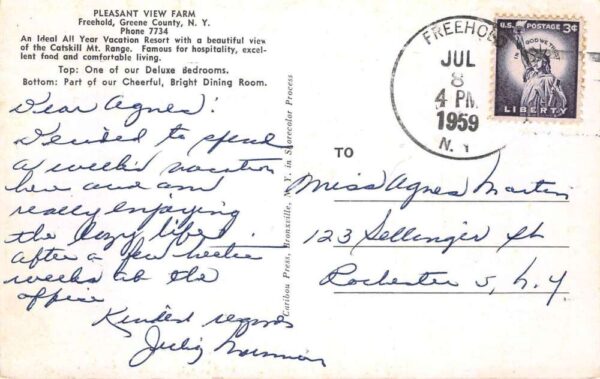 PLEASANT VIEW FARM
Freehold, Greene County, N. Y.
Phone 7734
An Ideal All Year Vacation Resort with a beautiful view
of the Catskill Mt. Range. Famous for hospitality, excel-
lent food and comfortable living.
Top: One of our Deluxe Bedrooms.
Bottom: Part of our Cheerful, Bright Dining Room.
Dear Agnes:
Decided to spend
a week's vacation
here and am
really enjoying
the lazy life
after a few hectic
weeks at the
office
Kindest regards
Caribou Press, Bronxville, N. Y. in Sharecolor Process
FREEHOLD
JUL
8
4 PM
1959
N. Y.
U.S. POSTAGE 3¢
IN GOD WE TRUST
LIBERTY
TO
Miss Agnes Martin
123 Sellinger St
Rochester 5, N.Y.